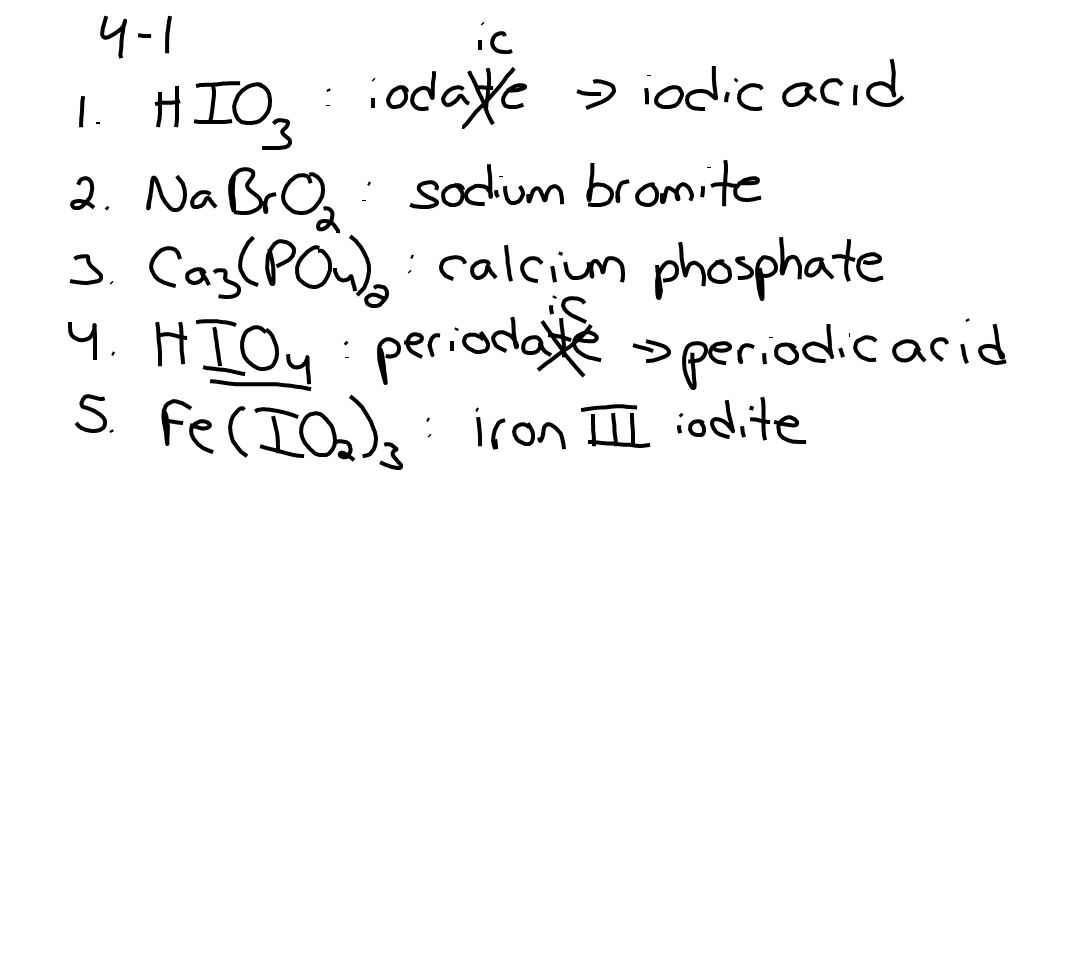 4-1
1. HIO₃ : iodate ic → iodic acid
2. NaBrO₂ : sodium bromite
3. Ca₃(PO₄)₂ : calcium phosphate
4. HIO₄ : periodate ic → periodic acid
5. Fe(IO₂)₃ : iron III iodite